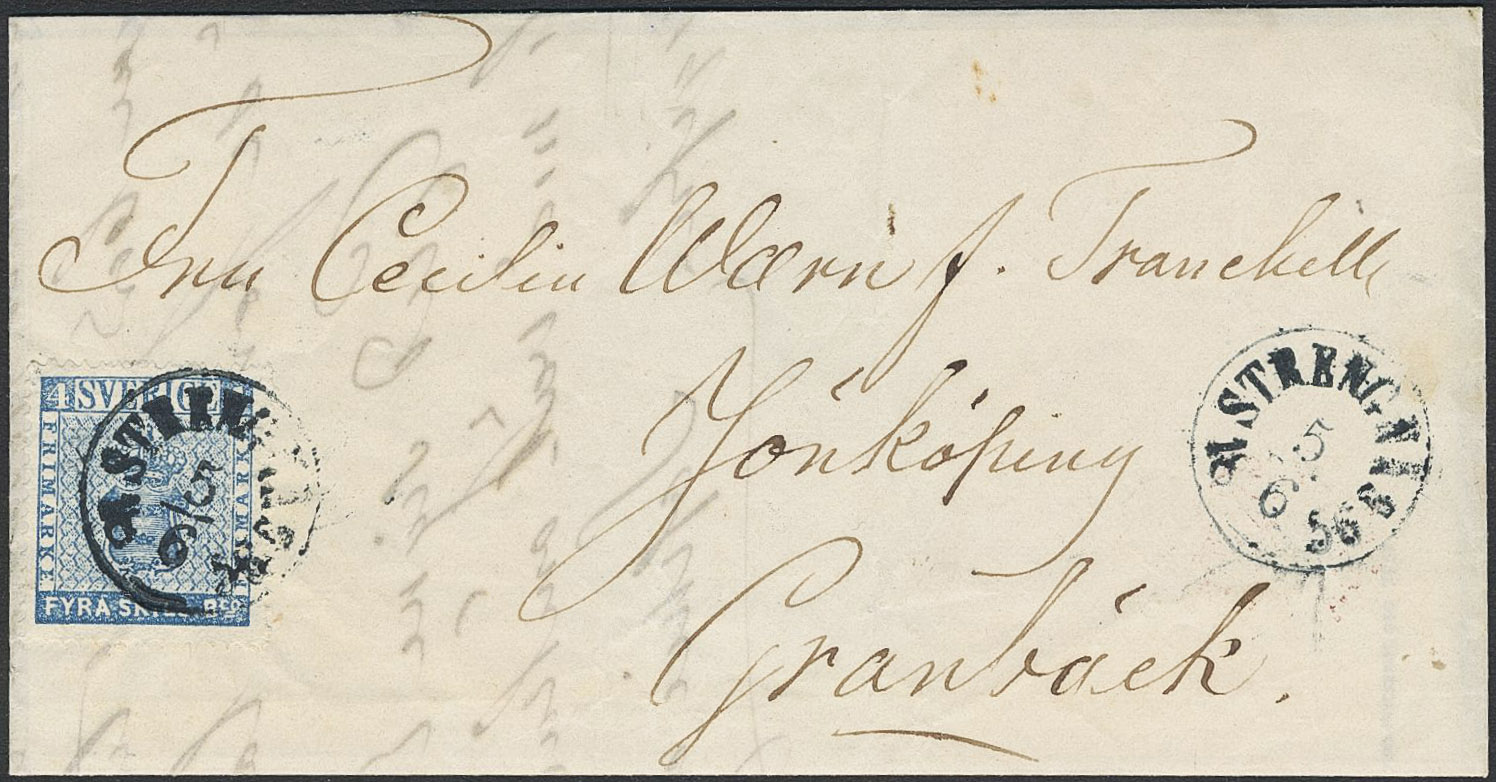 Fru Cecilia Wærn f. Tranchell
Jönköping
Granbäck.
4 SVERIGE
FRIMÄRKE
FRIMÄRKE
FYRA SKILL. Bco
STRENGNÄS
5
6
STRENGNÄS
5
6